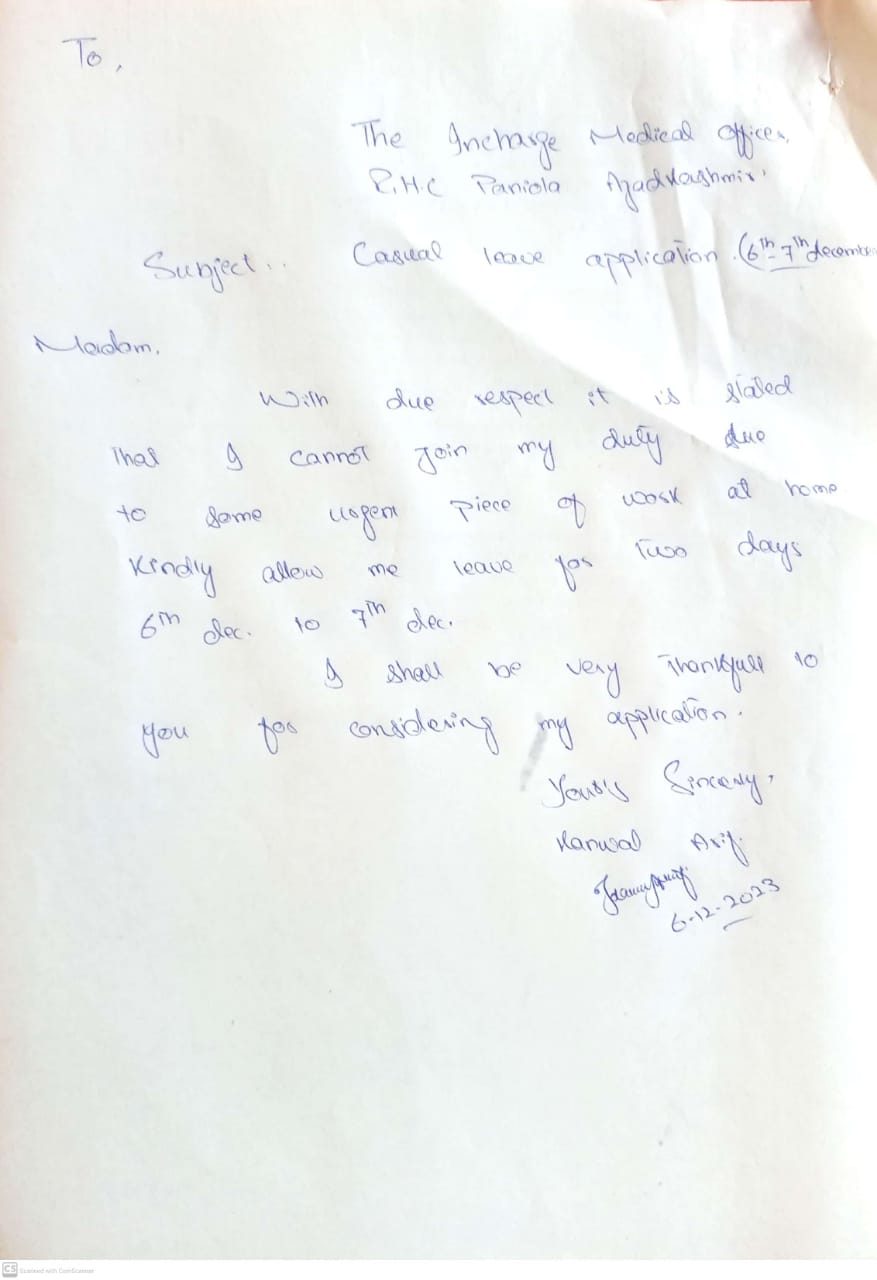 To,
The Incharge Medical Officer,
R.H.C Paniola Azad Kashmir.
Subject.. Casual leave application. (6th - 7th december
Madam,
With due respect it is stated
that I cannot join my duty due
to some urgent piece of work at home
Kindly allow me leave for two days
6th dec. to 7th dec.
I shall be very thankfull to
you for considering my application.
Yours Sincerly,
Kanwal Asif.
6-12-2023
CS Scanned with CamScanner